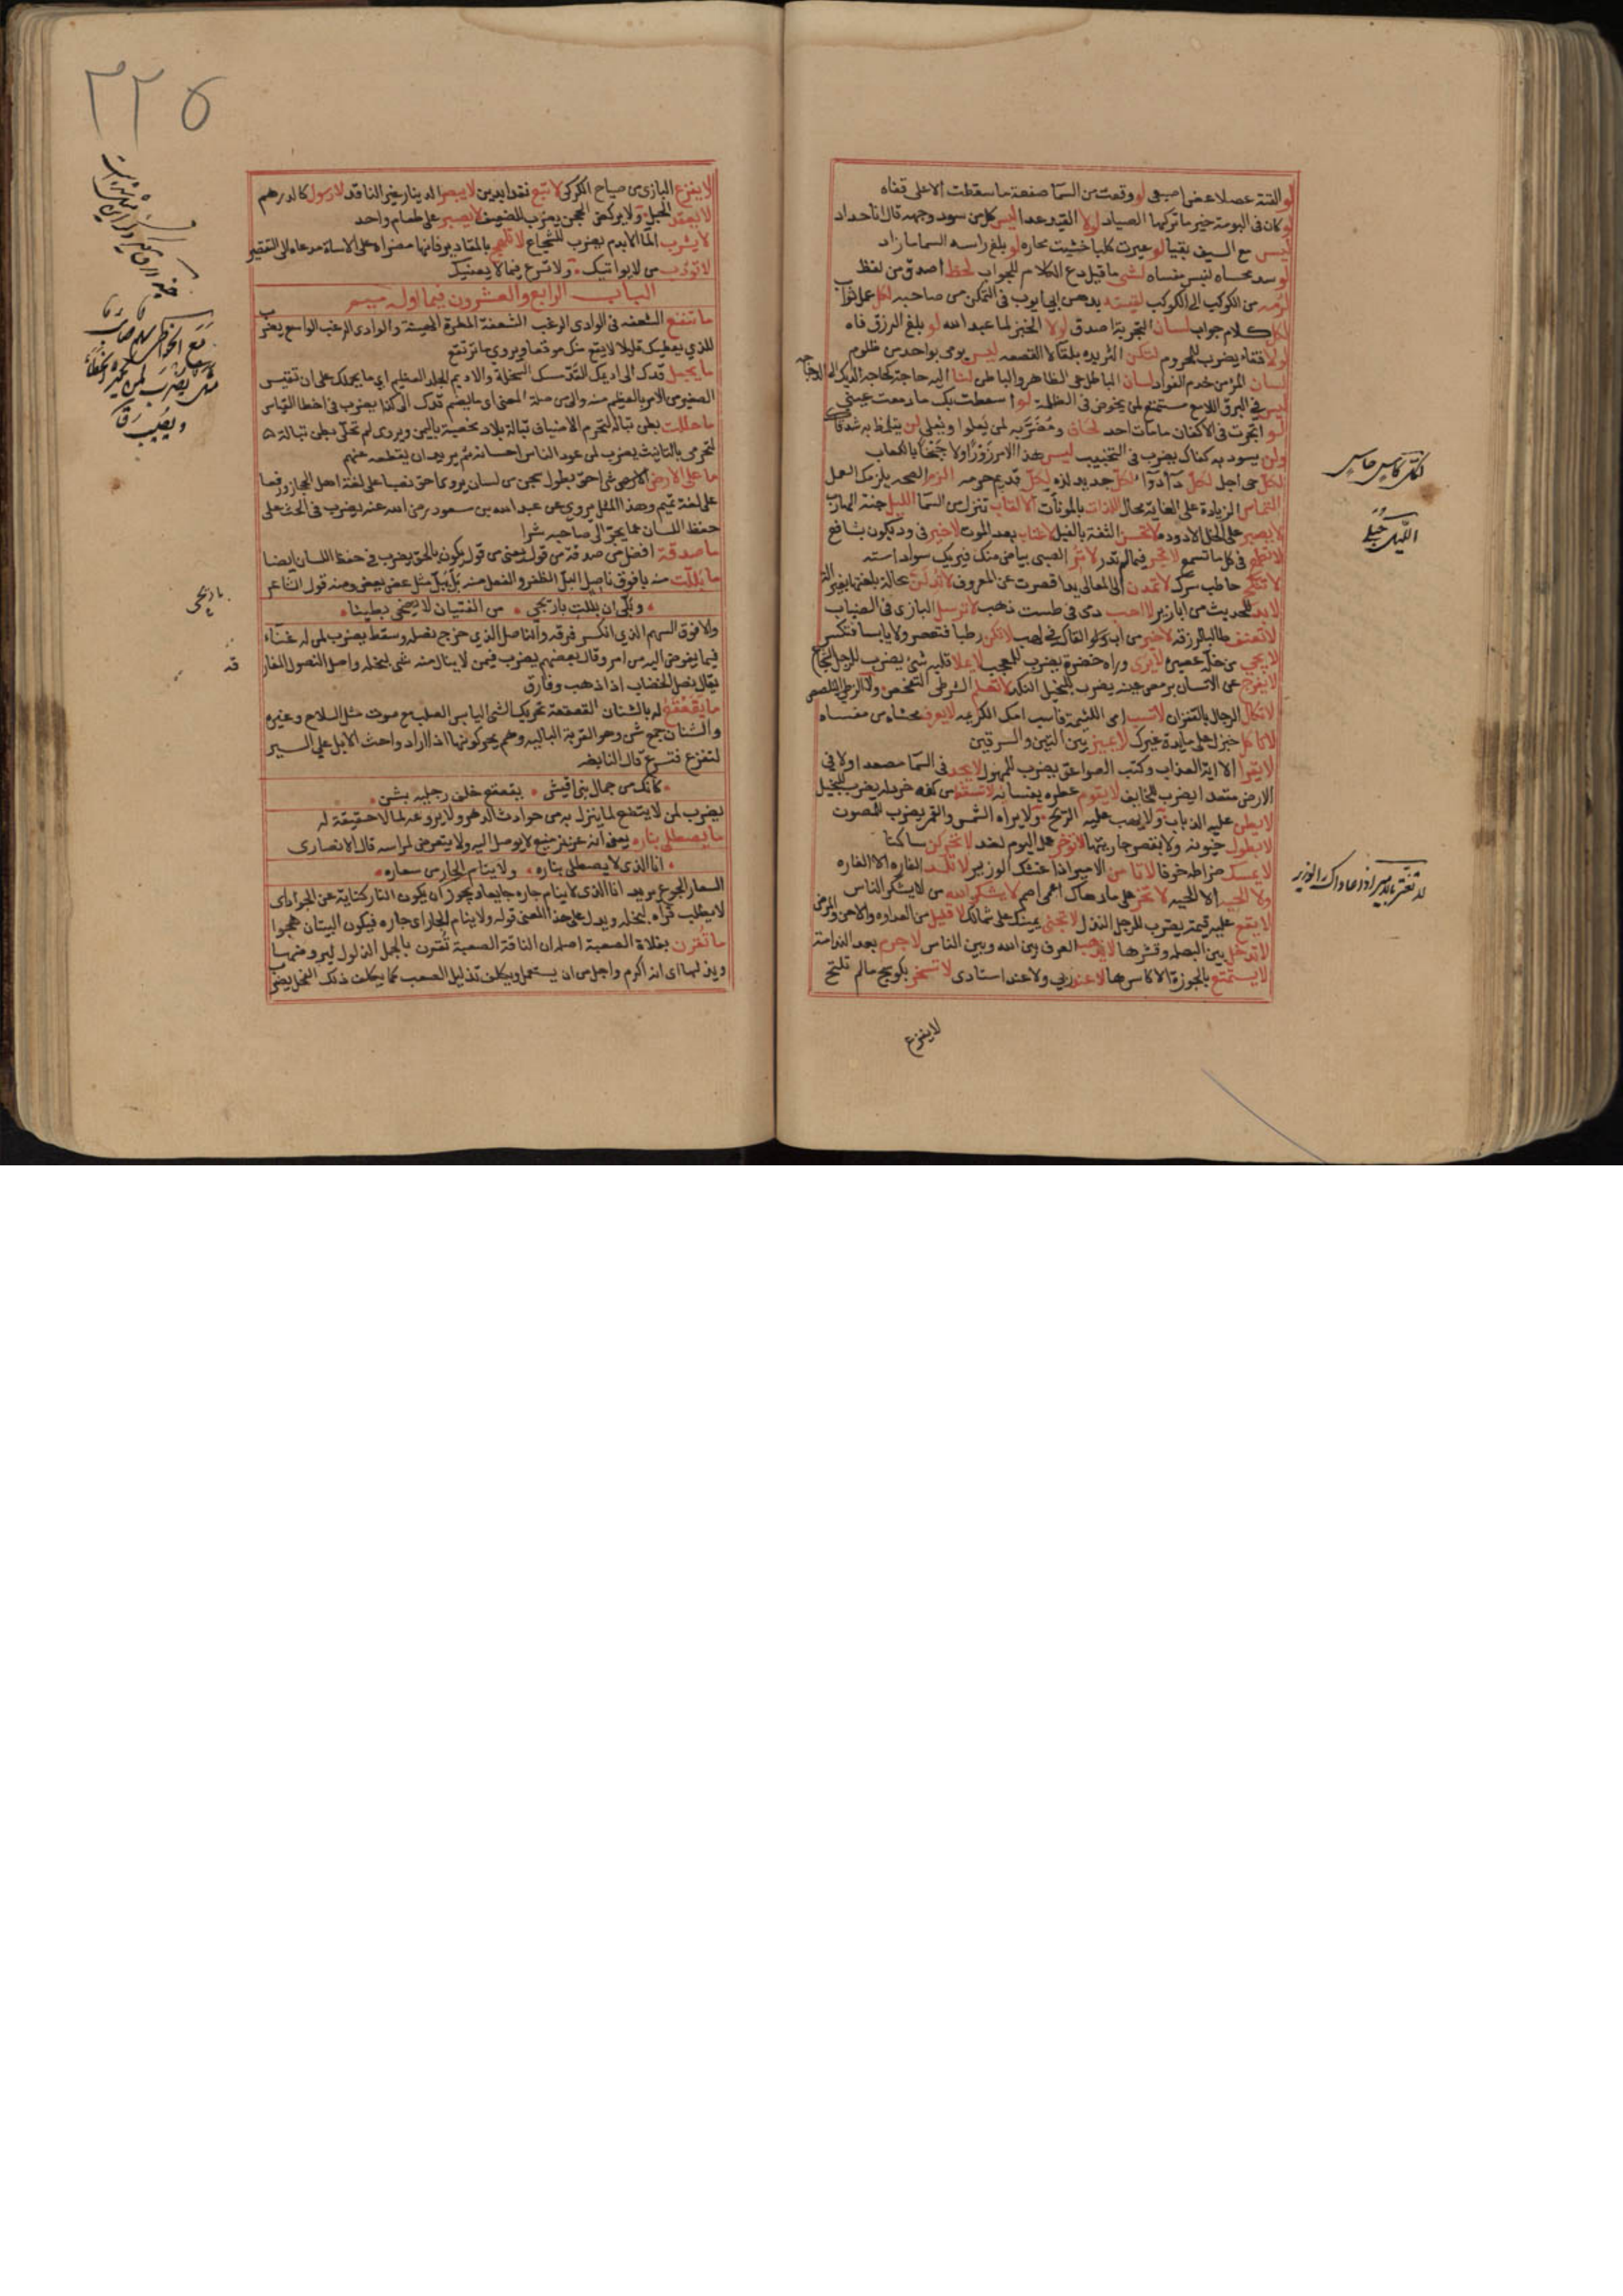 لو القته عسلا عض اصبعى لو وقعت من السما صفعة ما سقطت الا على قفاه
لو كان فى البومة خير ما تركها الصياد لولا القيد عدا ليس كل من سود وجهه قال انا حداد
ليس مع السيف بقيا لو عيرت كلبا خشيت محاره لو بلغ راسه السما ما زاد
لو سد محساه لنبس مفساه لشى ما قيل دع الكلام للجواب لحظ اصدق من لفظ
من الكوكب الى الكوكب لقيته بدهن ابى ايوب فى التمكن من صاحبه لكل عمل ثواب
لكل كلام جواب لسان التجربة اصدق لولا الخبز لما عبد الله لو بلغ الرزق فاه
لولاه قفاه يضرب للمحروم لتكن الثريده بلقا لا القصعه ليس يومى بواحد من ظلوم
لسان المرء من خدم الفواد لسان الباطل عى الظاهر والباطن لنا اليه حاجة كحاجة الديك الى الدجاجه
ليس فى البرق اللامع مستمتع لمن يخوض فى الظلمة لو اسعطت بك ما دمعت عينى
لو اتجرت فى الاكفان ما مات احد
ولن يسود به كفاك يضرب فى التخييب ليس هذا الامر زورا ولا جحفا بالكعاب
لكل حى اجل لكل داء دواء لكل جديد لذه لكل قديم حرمه الزم الصحه يلزمك العمل
التماس الزيادة على الغاية محال اللذات بالمونات الالقاب تنزل من السما الليل جنة الهارب
لا يصبر على الخل الا دوده لا تحسن الثقة بالفيل لا عتاب بعد الموت لا خير فى ود يكون بشافع
لا تطمع فى كل ما تسمع لا تجر فيما لم تدر لا تر الصبى بياض سنك فيريك سواد استه
لا تنكح حاطب سرك لا تمدن الى المعالى يدا قصرت عن المعروف لا تدلن بحالة بلغتها بغير الة
لابد للحديث من ابازير لا احب دمى فى طست ذهب لا ترسل البازى فى الضباب
لا تعنف طالبا لرزقه لا تكن رطبا فتعصر ولا يابسا فتكسر
لا يجى من خله عصير لا يرى وراه خضرة يضرب للمعجب لا يملا قلبه شى يضرب للرجل الشجاع
لا تعلم الشرطى التفحص ولا الزطى التلصص
لا تكال الرجال بالقفزان لا تسب امى اللئيمة فاسب امك الكريمه لا يعرف محساه من مفساه
لا تاكل خبزك على مايدة غيرك لا يميز بين التين والسرقين
لا يقرا الا اية العذاب وكتب الصواعق يضرب للمهول لا يجد فى السما مصعدا ولا فى
الارض مقعدا يضرب للخايف لا يقوم عطره بفسايه لا تسقط من كفه خردله يضرب للبخيل
لا يطن عليه الذباب ولا يهب عليه الريح ولا يراه الشمس والقمر يضرب للمصون
لا يطول حيوته ولا يقصر جاريتها لا توخر عمل اليوم لغد
لا يمسك ضراطه خوفا لا تامن الامير اذا غشك الوزير لا تلد الفاره الا الفاره
ولا الحيه الا الحيه لا تخر على مادهاك اعمى اصم لا يشكر الله من لا يشكر الناس
لا يقع عليه قيمة يضرب للرجل النذل لا تجنى يمينك على شمالك لا قليل من العداوه والاحن والمرض
لا تدخل بين البصله وقشرها لا يذهب العرف بين الله وبين الناس لا جرم بعد الندامة
لا يستمتع بالجوزة الا كاسرها لا عند ربى ولا عند استادى لا تسخر بكوسج ما لم تلتح
لا يفزع
الليل حبلى
لا تغتر بالامير اذا عاداك الوزير
٢٢٥
لا يفزع البازى من صياح الكركى لا تبع نقدا بدين لا يبصر الدينار غير الناقد لا رسول كالدرهم
لا يعقد الحبل ولا يركض المحجن يضرب للضعيف لا يصبر على طعام واحد
لا يشرب الما الا بدم يضرب للشجاع لا تلهج بالمقادير فانها مضراه على الاساة مدعاه الى التقصير
لا تودب من لا يواتيك ولا تسرع فيما لا يعنيك
الباب الرابع والعشرون فيما اوله ميم
ما تنفع الشعفه فى الوادى الرغب الشعفة المطرة الهينة والوادى الرغب الواسع يضرب
للذى يعطيك قليلا لا يقع منك موقعا ويروى ما ترتفع
ما يجعل قدك الى اديمك القد مسك السخلة والاديم الجلد العظيم اى ما يحملك على ان تقيس
الصغير من الامر بالعظيم منه والى من صلة المعنى اى ما يضم قدك الى كذا يضرب فى اخطا القياس
ما حللت بطن تبالة لتحرم الاضياف تبالة بلاد مخصبة باليمن ويروى لم تحلى بطن تبالة
لتحرمى بالتانيث يضرب لمن عود الناس احسانه ثم يريد ان يقطعه عنهم
ما على الارض شى احق بطول سجن من لسان يروى احق نصبا على لغة اهل الحجاز ورفعا
على لغة تميم وهذا المثل مروى عن عبد الله بن مسعود رضى الله عنه يضرب فى الحث على
حفظ اللسان عما يجر الى صاحبه شرا
ما صدقة افضل من صدقة من قول يعنى من قول يكون بالحق يضرب فى حفظ اللسان ايضا
ما بللت منه بافوق ناصل البل الظفر والفعل منه بل يبل مثل عض يعض ومنه قول الشاعر
وبلى ان بللت باريحى من الفتيان لا يضحى بطينا
والافوق السهم الذى انكسر فوقه والناصل الذى خرج نصله وسقط يضرب لمن له غناء
فيما يفوض اليه من امر وقال بعضهم يضرب فيمن لا ينال منه شى لبخله واصل النصول المفار
يقال نصل الخضاب اذا ذهب وفارق
ما يقعقع له بالشنان القعقعة تحريك الشى اليابس الصلب مع صوت مثل السلاح وغيره
والشنان جمع شن وهو القربة الباليه وهم يحركونها اذا ارادوا حث الابل على السير
لتفزع فتسرع قال النابغه
كانك من جمال بنى اقيش يقعقع خلف رجليه بشن
يضرب لمن لا يتضع لما ينزل به من حوادث الدهر ولا يروعه لما لا حقيقة له
ما يصطلى بناره يعنى انه عزيز منيع لا يوصل اليه ولا يتعرض لمراسه قال الانصارى
انا الذى لا يصطلى بناره ولا ينام الجار من سعاره
السعار الجوع يريد انا الذى لا ينام جاره جايعا ويجوز ان يكون النار كناية عن الجود اى
لا يطلب قراه لبخله ويدل على هذا المعنى قوله ولا ينام الجار اى جاره فيكون البيتان هجوا
ما تقرن بفلان الصعبة اصله ان الناقة الصعبة تقرن بالجمل الذلول ليروضها
ويذللها اى انه اكرم واجل من ان يستعمل ويكلف تذليل الصعب كما يكلف ذلك الفحل يضرب
مع الخواطى سهم صائب
باريحى
قه